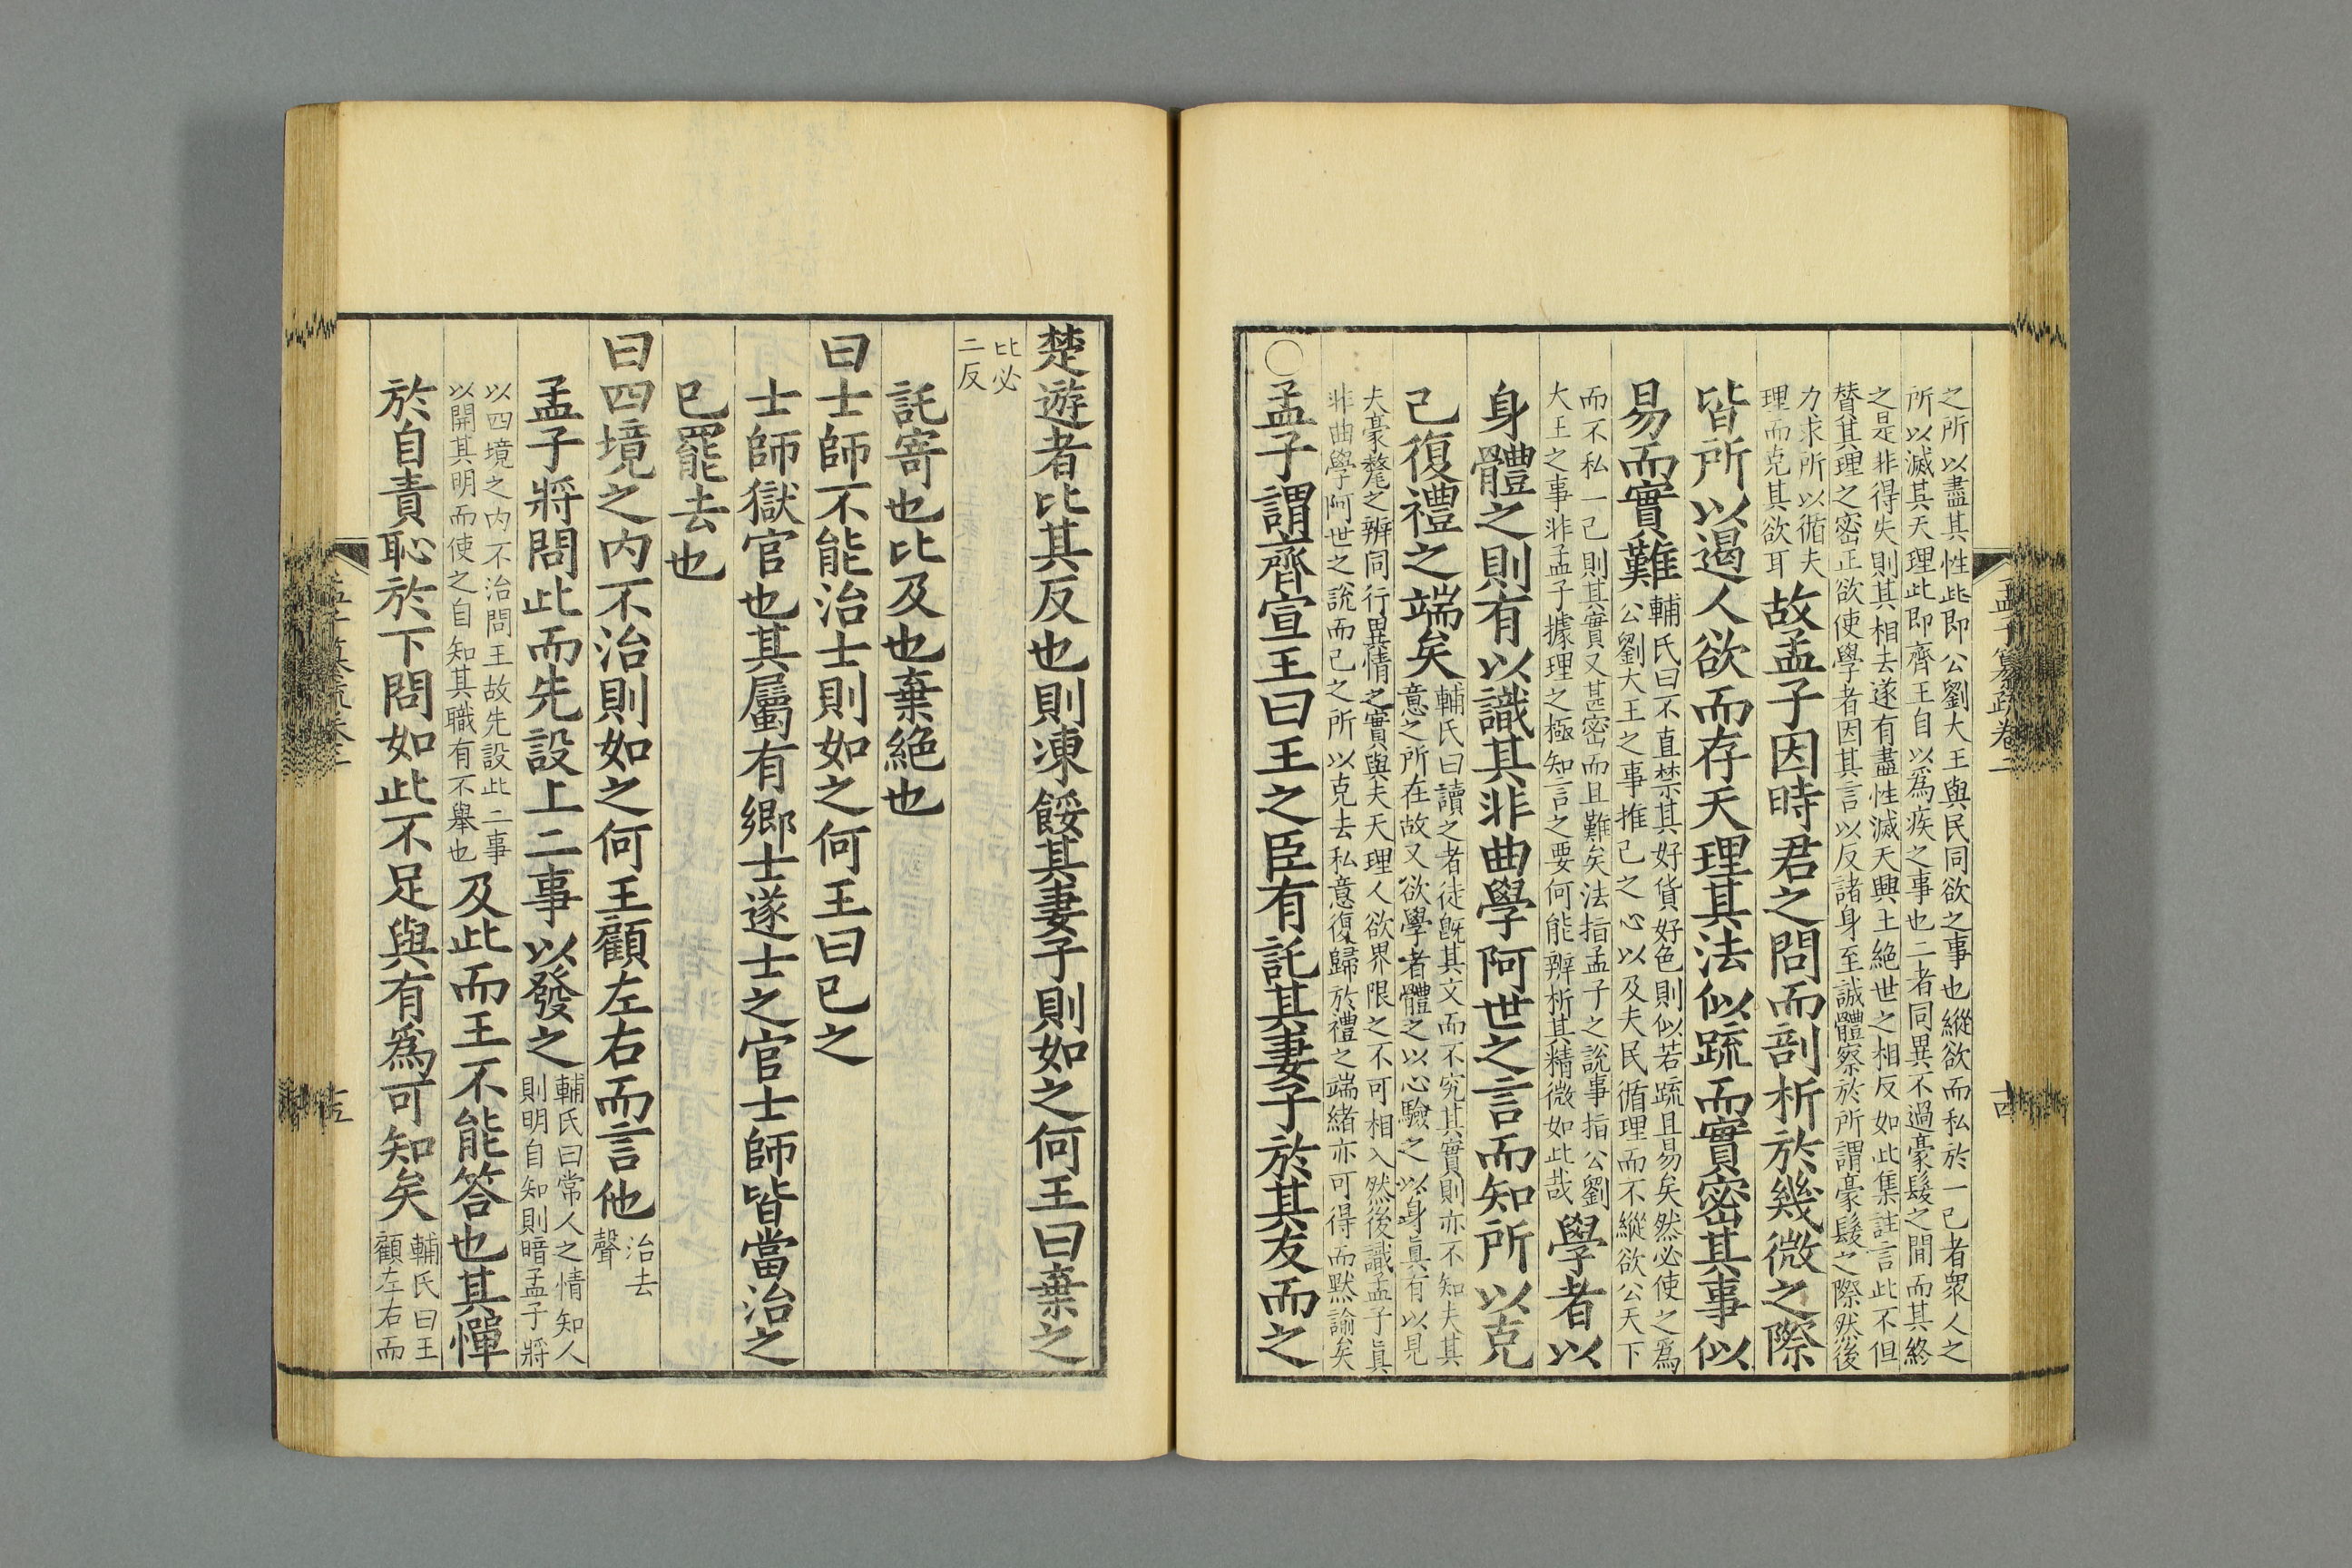 孟子纂疏卷二
十四
之所以盡其性此即公劉大王與民同欲之事也縱欲而私於一己者衆人之
所以滅其天理此即齊王自以爲疾之事也二者同異不過毫髮之間而其終
之是非得失則其相去遂有盡性滅天興土絶世之相反如此集註言此不但
替其理之密正欲使學者因其言以反諸身至誠體察於所謂毫髮之際然後
力求所以循夫
理而克其欲耳
故孟子因時君之問而剖析於幾微之際
皆所以遏人欲而存天理其法似疏而實密其事似
易而實難
輔氏曰不直禁其好貨好色則似若疏且易矣然必使之爲
公劉大王之事推己之心以及夫民循理而不縱欲公天下
而不私一己則其實又甚密而且難矣法指孟子之說事指公劉
大王之事非孟子據理之極知言之要何能辨析其精微如此哉
學者以
身體之則有以識其非曲學阿世之言而知所以克
己復禮之端矣
輔氏曰讀之者徒旣其文而不究其實則亦不知夫其
意之所在故又欲學者體之以心驗之以身眞有以見
夫毫釐之辨同行異情之實與夫天理人欲界限之不可相入然後識孟子眞
非曲學阿世之說而己之所以克去私意復歸於禮之端緒亦可得而默諭矣
○孟子謂齊宣王曰王之臣有託其妻子於其友而之
楚遊者比其反也則凍餒其妻子則如之何王曰棄之
比必
二反
託寄也比及也棄絶也
曰士師不能治士則如之何王曰已之
士師獄官也其屬有鄉士遂士之官士師皆當治之
已罷去也
曰四境之内不治則如之何王顧左右而言他
治去
聲
孟子將問此而先設上二事以發之
輔氏曰常人之情知人
則明自知則暗孟子將
以四境之内不治問王故先設此二事
以開其明而使之自知其職有不舉也
及此而王不能答也其憚
於自責恥於下問如此不足與有爲可知矣
輔氏曰王
顧左右而
孟子纂疏卷二
十五